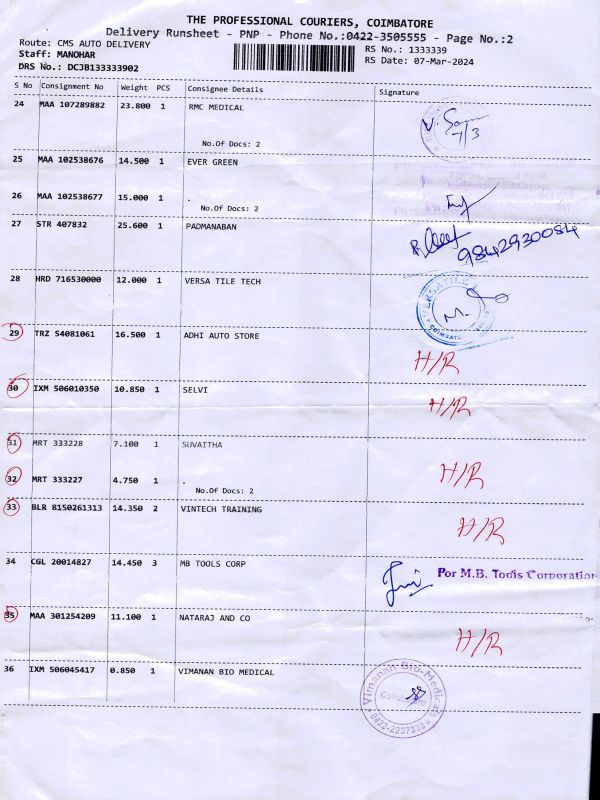 THE PROFESSIONAL COURIERS, COIMBATORE
Delivery Runsheet - PNP - Phone No.:0422-3505555 - Page No.:2
Route: CMS AUTO DELIVERY
RS No.: 1333339
Staff: MANOHAR
RS Date: 07-Mar-2024
DRS No.: DCJB133333902
S No Consignment No Weight PCS Consignee Details Signature
24 MAA 107289882 23.800 1 RMC MEDICAL
7/3
No.Of Docs: 2
25 MAA 102538676 14.500 1 EVER GREEN
26 MAA 102538677 15.000 1 .
No.Of Docs: 2
27 STR 407832 25.600 1 PADMANABAN
9842930084
28 HRD 716530000 12.000 1 VERSA TILE TECH
29 TRZ 54081061 16.500 1 ADHI AUTO STORE
H/R
30 IXM 506010350 10.850 1 SELVI
H/R
31 MRT 333228 7.100 1 SUVAITHA
H/R
32 MRT 333227 4.750 1 .
No.Of Docs: 2
33 BLR 8150261313 14.350 2 VINTECH TRAINING
H/R
34 CGL 20014827 14.450 3 MB TOOLS CORP
For M.B. Tools Corporation
35 MAA 301254209 11.100 1 NATARAJ AND CO
H/R
36 IXM 506045417 0.850 1 VIMANAN BIO MEDICAL
Vimanan Bio-Medicals
Coimbatore
0422-2237333